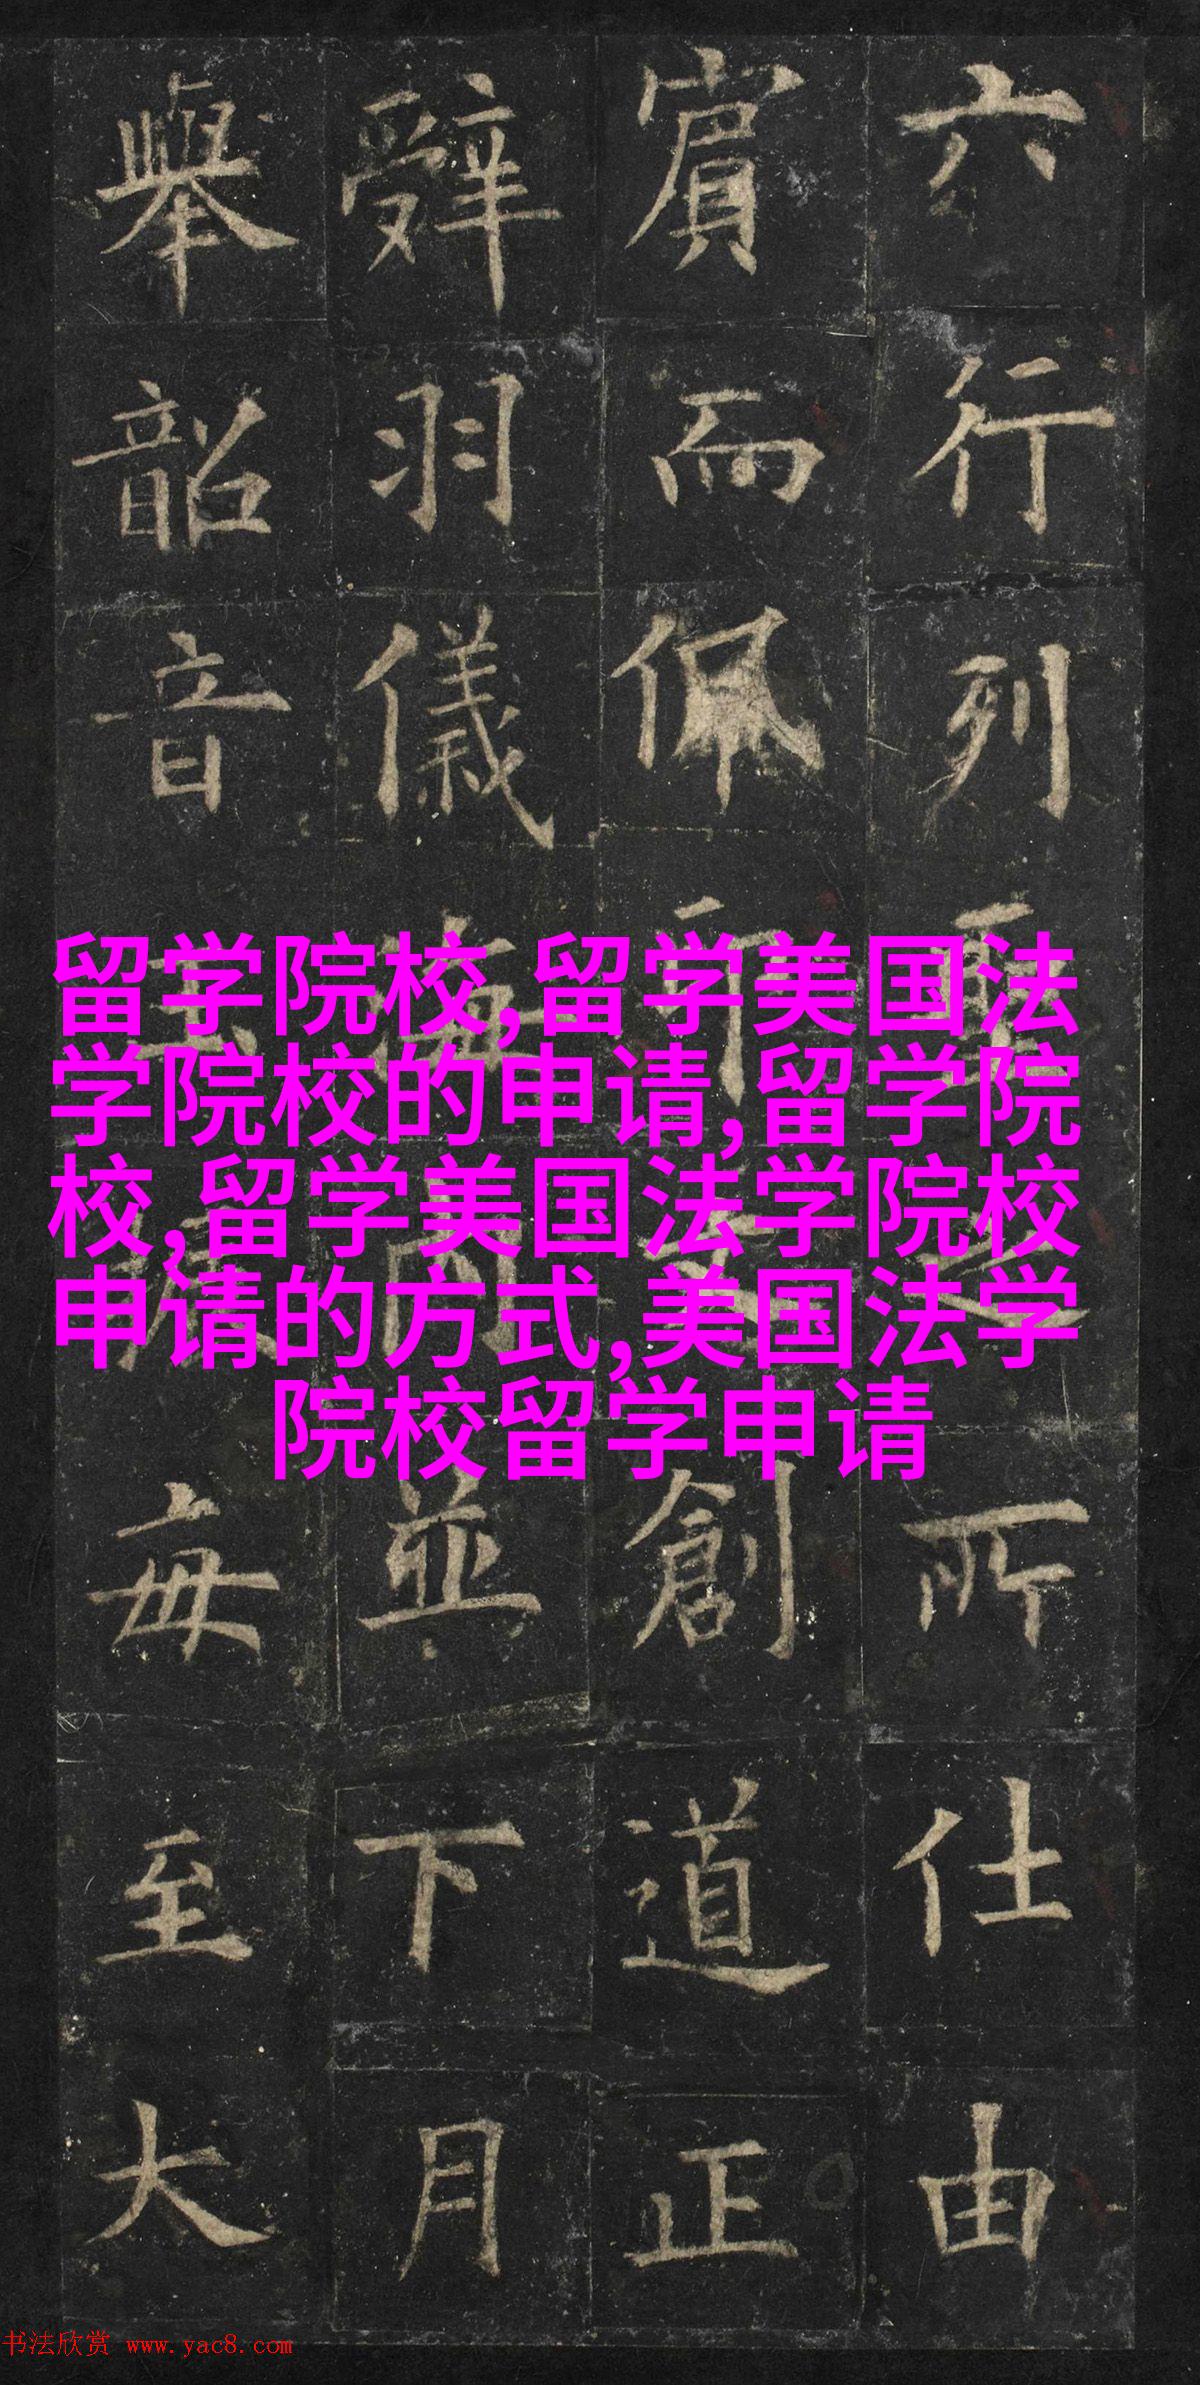 留学院校,留学美国法
学院校的申请,留学院
校,留学美国法学院校
申请的方式,美国法学
院校留学申请
六行列聖之所仕由
賓而佩可創道正
辭羽儀海内並下月
舉韶音毎至大
书法欣赏 www.yac8.com